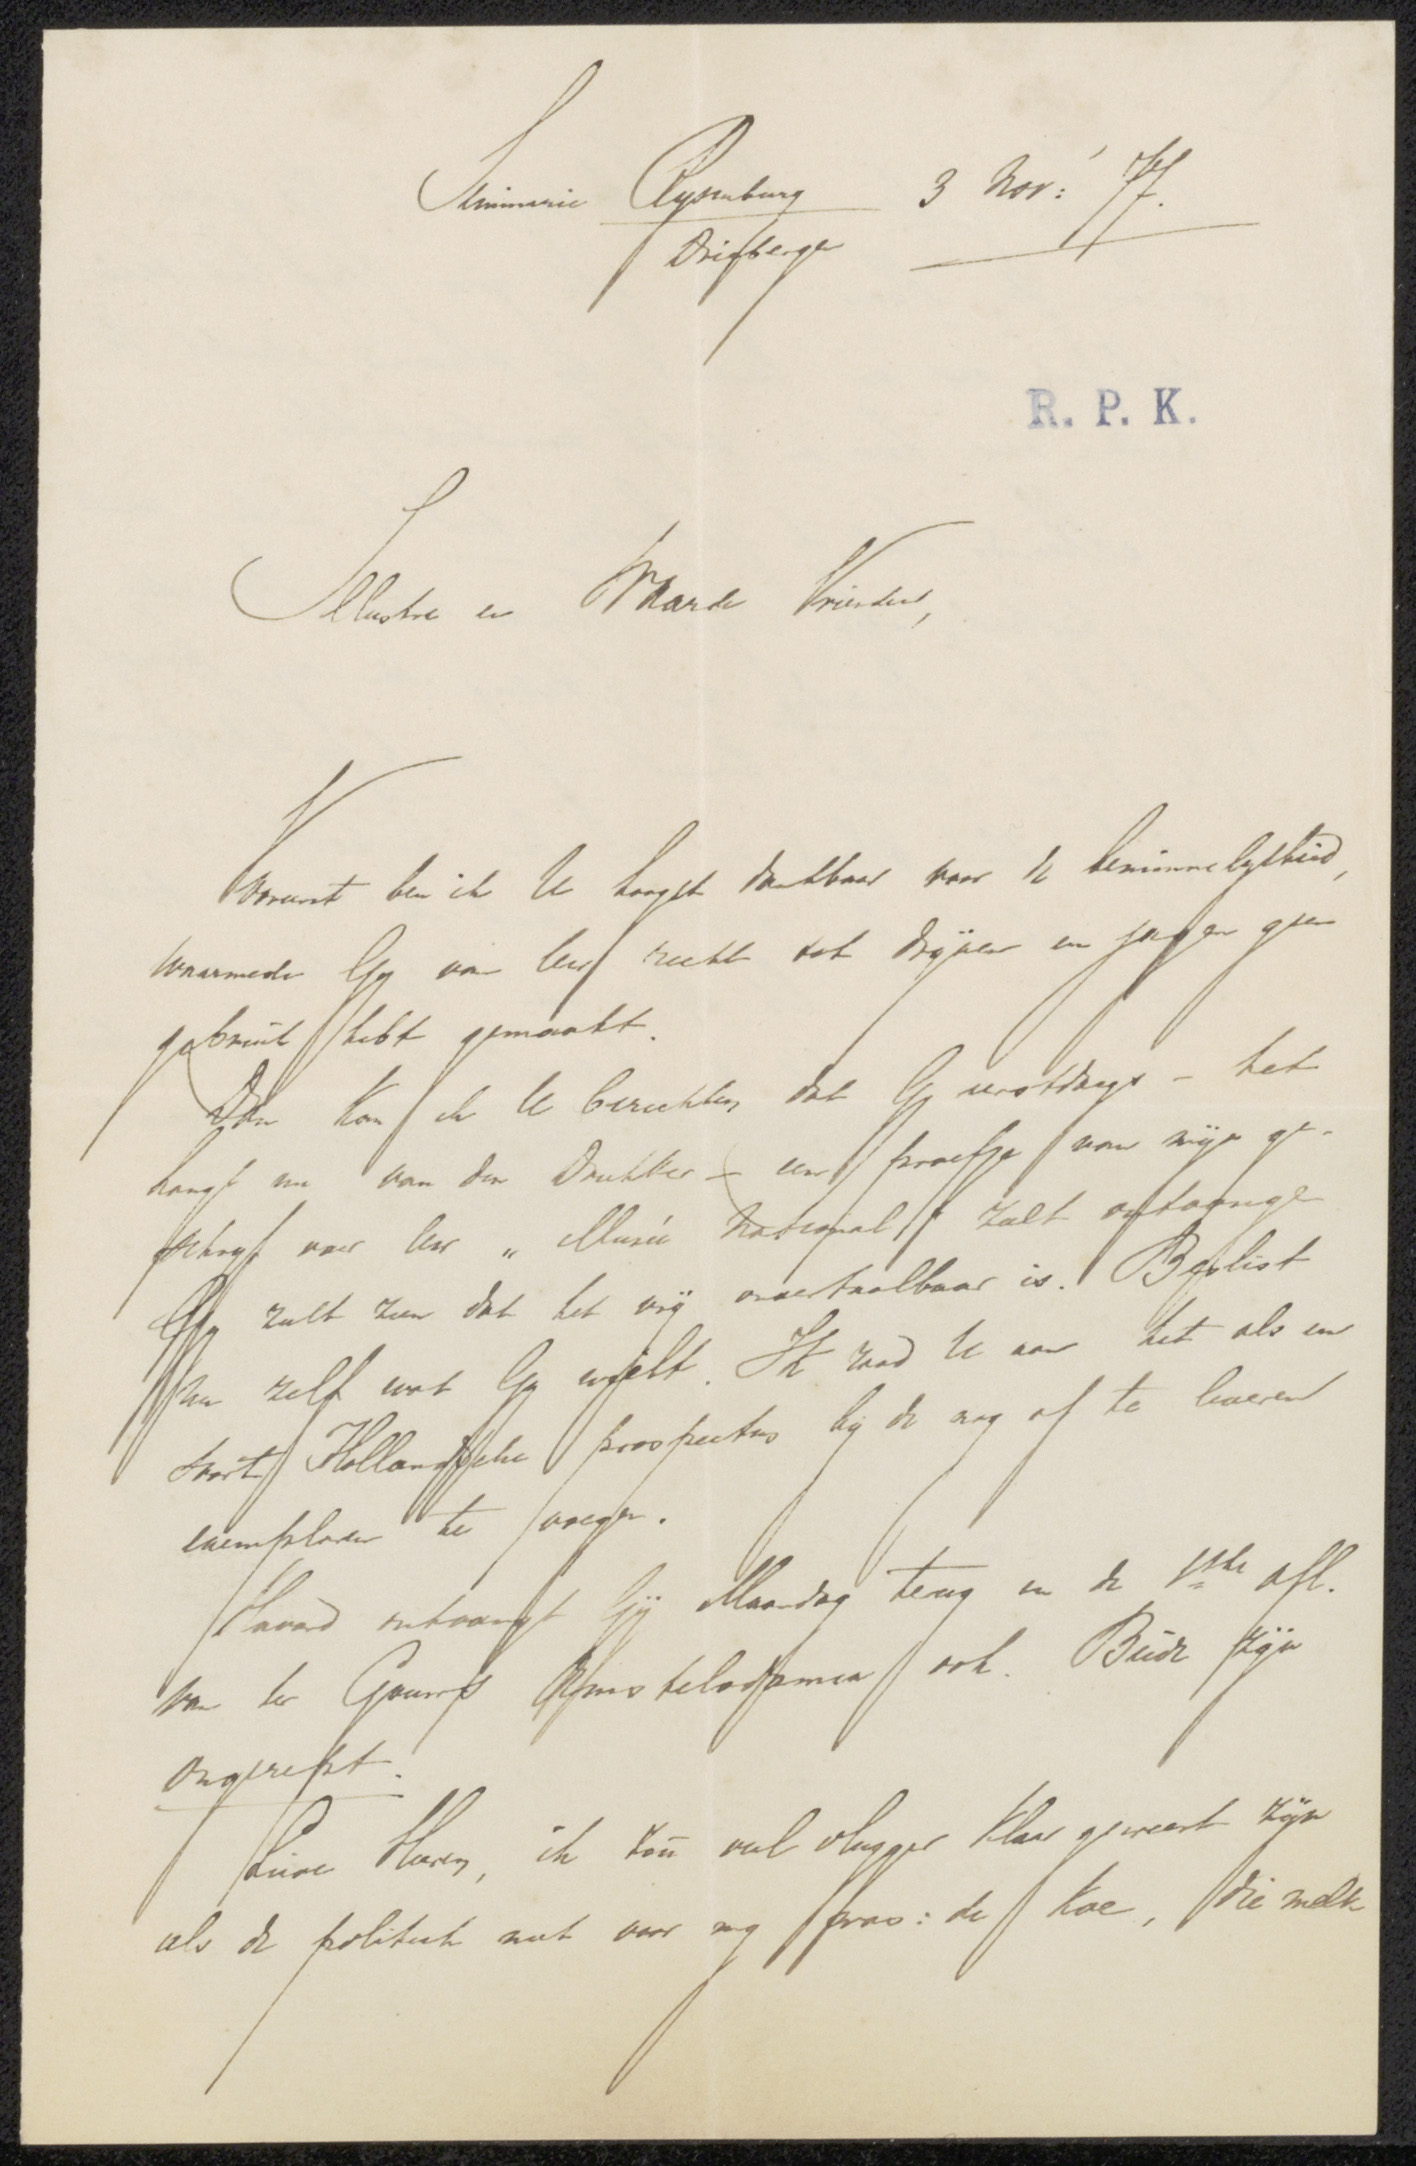 Seminarie Rysenburg 3 Nov: '77.
Driebergen
R. P. K.
Illustre en Waarde Vrienden,
Vooreerst ben ik U hoogst dankbaar voor de beminnelykheid,
waarmede Gy van Uw recht tot drijven en jagen geen
gebruik hebt gemaakt.
Dan kan ik U berichten dat Gy eerstdaags – het
hangt nu van den Drukker – een proefje van mijn ge-
schryf over Uw „Musée National" zult ontvangen
Gy zult zien dat het vrij onvertaalbaar is. Beslist
nu zelf wat Gy wilt. Ik raad U aan het als een
soort Hollandsche prospectus by de nog af te leveren
exemplaren te voegen.
Havard ontvangt Gij Maandag terug en de 1ste afl.
van ter Gouw's Amstelodamea ook. Beide zijn
ongerept.
Lieve Heeren, ik zou veel vlugger klaar geweest zijn
als de politiek niet voor my was: de koe, die melk